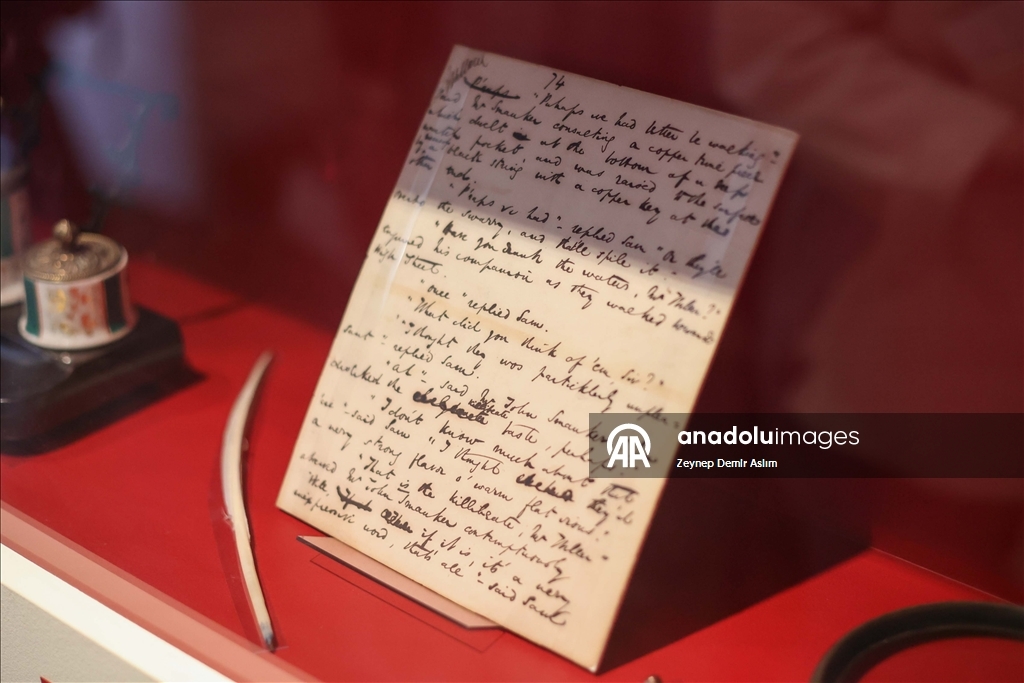 74
"Perhaps we had better be walking"
said Mr Smauker consulting a copper time piece
which dwelt at the bottom of a deep
watch pocket, and was raised to the surface
by a black string with a copper key at the
other end.
"P'raps ve had" - replied Sam "or they'll
overdo the swarry, and that'll spile it".
"Have you drank the waters, Mr Weller?"
enquired his companion as they walked towards
High Street.
"Once" replied Sam.
"What did you think of 'em Sir?"
"I thought they was particklerly unplea-
sant" - replied Sam.
"Ah" - said Mr John Smauker "you
disliked the killibeate taste, perhaps?"
"I don't know much about that
ere" - said Sam "I thought they'd
a wery strong flavor o' warm flat irons".
"That is the killibeate, Mr Weller" -
observed Mr John Smauker contemptuously
"Well, if it is, it's a wery
inexpressive word, that's all" - said Sam
AA
anadoluimages
Zeynep Demir Aslım